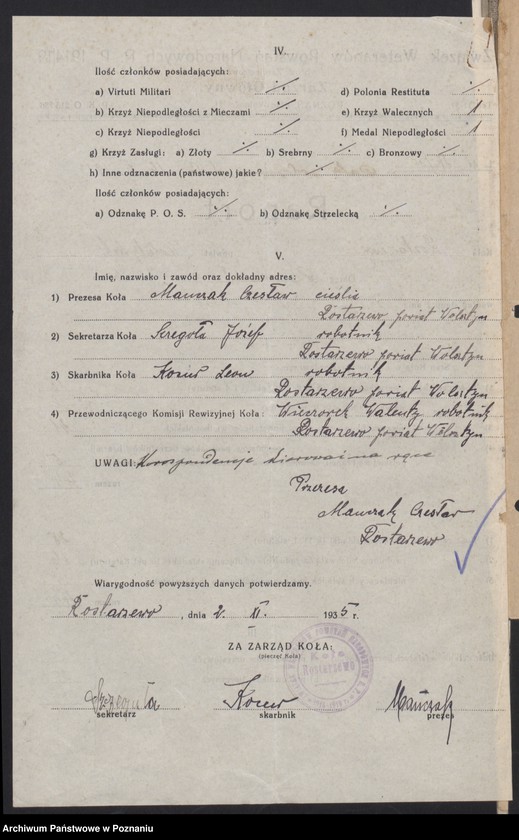 IV.
Ilość członków posiadających:
a) Virtuti Militari ./. d) Polonia Restituta ./.
b) Krzyż Niepodległości z Mieczami ./. e) Krzyż Walecznych 1
c) Krzyż Niepodległości ./. f) Medal Niepodległości 1
g) Krzyż Zasługi: a) Złoty ./. b) Srebrny ./. c) Bronzowy ./.
h) Inne odznaczenia (państwowe) jakie? ./.
Ilość członków posiadających:
a) Odznakę P. O. S. ./. b) Odznakę Strzelecką ./.
V.
Imię, nazwisko i zawód oraz dokładny adres:
1) Prezesa Koła Mańczak Czesław cieśla
Rostarzewo powiat Wolsztyn
2) Sekretarza Koła Szreguła Józef robotnik
Rostarzewo powiat Wolsztyn
3) Skarbnika Koła Leon robotnik
Rostarzewo powiat Wolsztyn
4) Przewodniczącego Komisji Rewizyjnej Koła: Wieczorek Walenty robotnik
Rostarzewo powiat Wolsztyn
UWAGI: Korospondencje kierować na ręce
Prezesa
Mańczak Czesław
Rostarzewo
Wiarygodność powyższych danych potwierdzamy.
Rostarzewo, dnia 2. XI. 1935 r.
ZA ZARZĄD KOŁA:
(pieczęć Koła)
Koło
Rostarzewo
Szreguła Mańczak
sekretarz skarbnik prezes
Archiwum Państwowe w Poznaniu